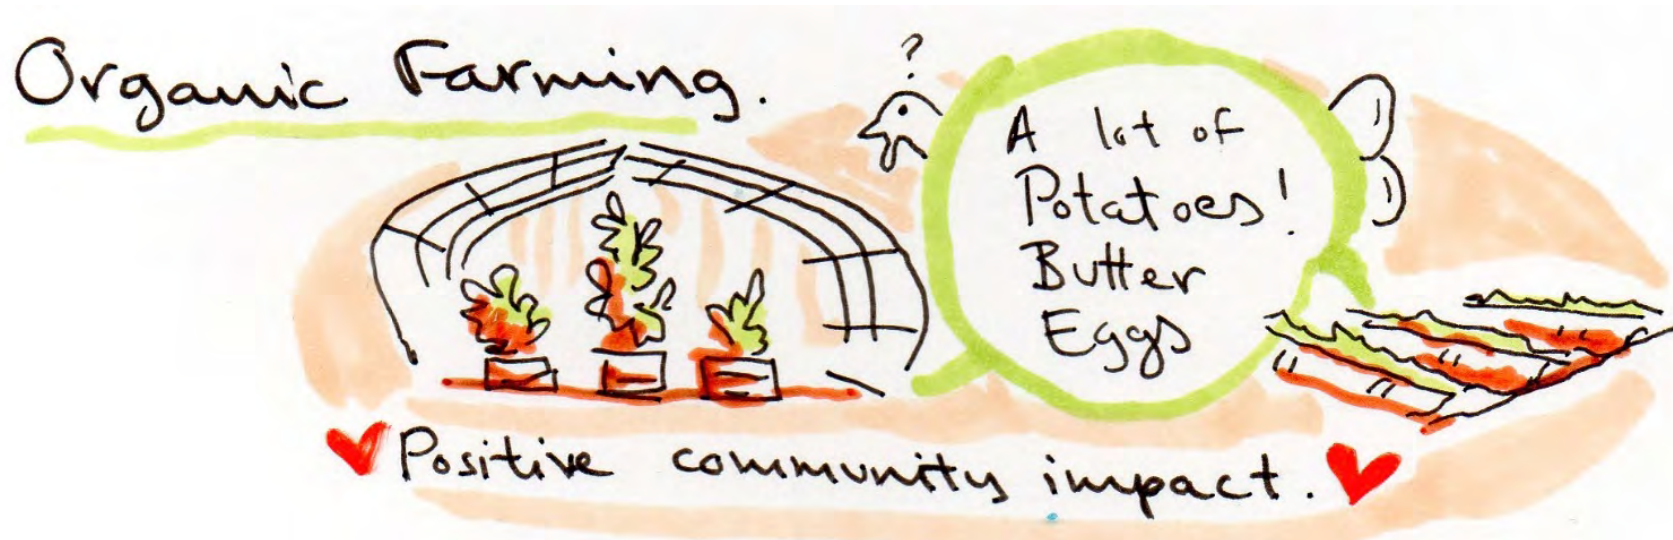 Organic Farming.
?
A lot of
Potatoes!
Butter
Eggs
Positive community impact.